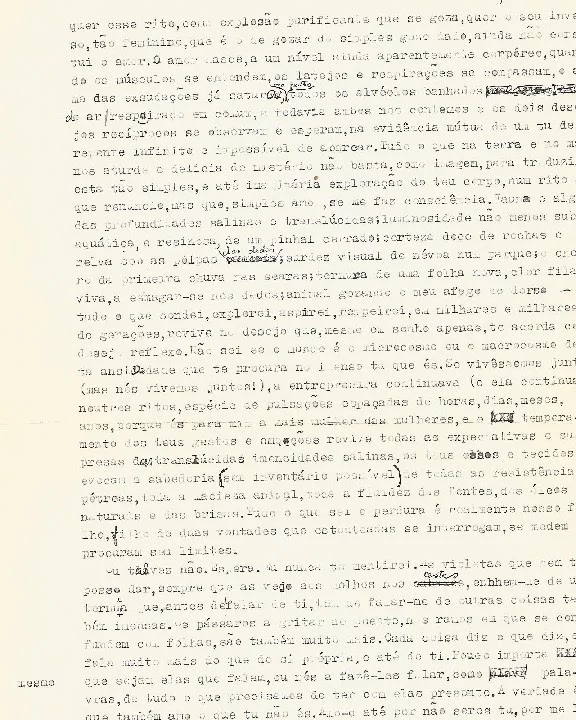 quer esse rito, como explosão purificante que se goza, quer o seu inve
so, tão feminino, que é o de gozar do simples gozo dado, ainda não cons
tui o amor. O amor nasce, a um nível ainda aparentemente corpóreo, quan
do os músculos se entendem, os latejos e respirações se compassam, e o
ma das exsudações já todos os alvéolos banhados
do ar respirado em comum, e todavia ambos nos contemos e os dois dese
jos recíprocos se observam e esperam, na evidência mútua de um tu de
repente infinito e impossível de abarcar. Tudo o que na terra e no ma
nos aturde o delícia do mistério não basta, como imagem, para traduzi
esta tão simples, e até imaginária exploração do teu corpo, num rito
que renuncio, mas que, simples amor, se me faz consciência. Fauna e alg
das profundidades salinas e translúcidas; luminosidade não menos sub
aquática, e resinosa, de um pinhal cerrado; certeza doce de rochas e
relva sob as polpas dos dedos; surdez visual de névoa num parque; o che
ro da primeira chuva nas searas; ternura de uma folha nova, flor fila
viva, a esmagar-se nos dedos; animal gozando o meu afago no dorso —
tudo o que sondei, explorei, aspirei, rompeirei, em milhares e milhares
de gerações, revive no desejo que, mesmo em sonho apenas, te acorda co
desejo reflexo. Não sei se o nosso é o microcosmo ou o macrocosmo de
ta ansiedade que te procura no imenso tu que és. Se vivêssemos junt
(mas nós vivemos juntos!), a entrepresa continuava (e ela continua
noutros ritos, espécie de pulsações espaçadas de horas, dias, meses,
anos, porque és para mim a mais mulher das mulheres, e o tempera-
mento dos teus gestos e omoções revive todas as expectativas e su
presas das translúcidas imensidades salinas, os teus ossos e tecidos
evocam a sabedoria (sem inventário possível) de todas as resistência
pétreas, toda a macieza animal, toda a fluidez das fontes, dos óleos
naturais e das brisas. Tudo o que ser e perdura é realmente nosso f
lho, filho de duas vontades que estonteadas se interrogam, se medem
procuram sem limites.
Tu talvez não. Espera. Tu nunca te mentirei. As violetas que nem t
posso dar, sempre que as vejo aos molhos nos cestos, enchem-me de u
ternura que, antes de falar de ti, tem de falar-me de outras coisas ta
bém imensas. Os pássaros a gritar ao poente, nos ramos em que se con
fundem com folhas, são também muito mais. Cada coisa diz o que diz, e
fala muito mais do que de si própria, e até do ti. Pouco importa
mesmo que sejam elas que falem, ou nós a fazê-las falar, como pala-
vras, de tudo o que precisamos de ter com elas presente. A verdade é
que também amo o que tu não és. Amo-o até por não seres tu, por me